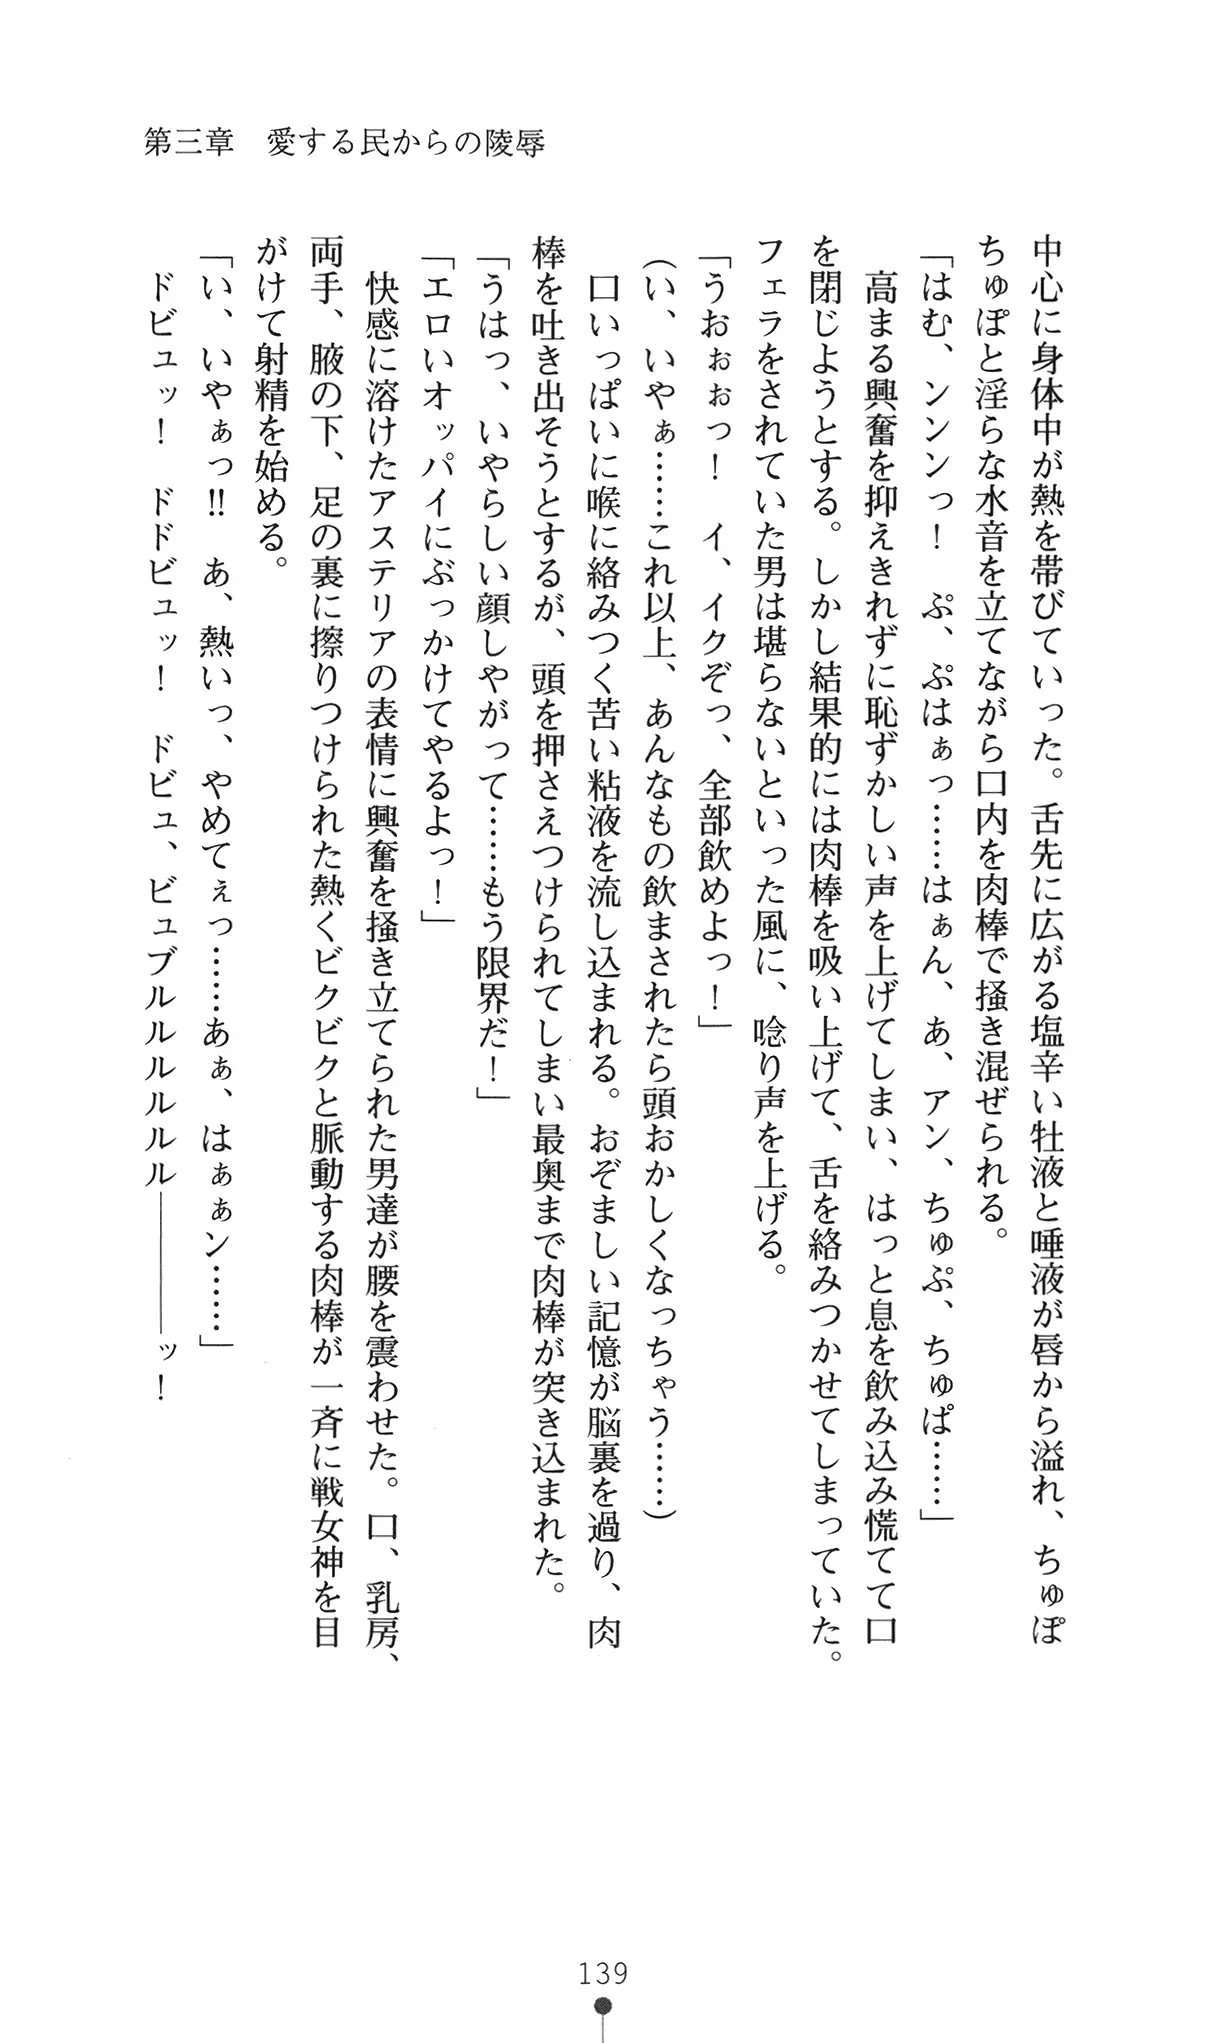 第三章　愛する民からの陵辱
中心に身体中が熱を帯びていった。舌先に広がる塩辛い牡液と唾液が唇から溢れ、ちゅぽ
ちゅぽと淫らな水音を立てながら口内を肉棒で掻き混ぜられる。
「はむ、ンンンっ！　ぷ、ぷはぁっ……はぁん、あ、アン、ちゅぷ、ちゅぱ……」
　高まる興奮を抑えきれずに恥ずかしい声を上げてしまい、はっと息を飲み込み慌てて口
を閉じようとする。しかし結果的には肉棒を吸い上げて、舌を絡みつかせてしまっていた。
フェラをされていた男は堪らないといった風に、唸り声を上げる。
「うおぉぉっ！　イ、イクぞっ、全部飲めよっ！」
（い、いやぁ……これ以上、あんなもの飲まされたら頭おかしくなっちゃう……）
　口いっぱいに喉に絡みつく苦い粘液を流し込まれる。おぞましい記憶が脳裏を過り、肉
棒を吐き出そうとするが、頭を押さえつけられてしまい最奥まで肉棒が突き込まれた。
「うはっ、いやらしい顔しやがって……もう限界だ！」
「エロいオッパイにぶっかけてやるよっ！」
　快感に溶けたアステリアの表情に興奮を掻き立てられた男達が腰を震わせた。口、乳房、
両手、腋の下、足の裏に擦りつけられた熱くビクビクと脈動する肉棒が一斉に戦女神を目
がけて射精を始める。
「い、いやぁっ!!　あ、熱いっ、やめてぇっ……あぁ、はぁぁン……」
　ドビュッ！　ドドビュッ！　ドビュ、ビュブルルルルルル――――ッ！
139